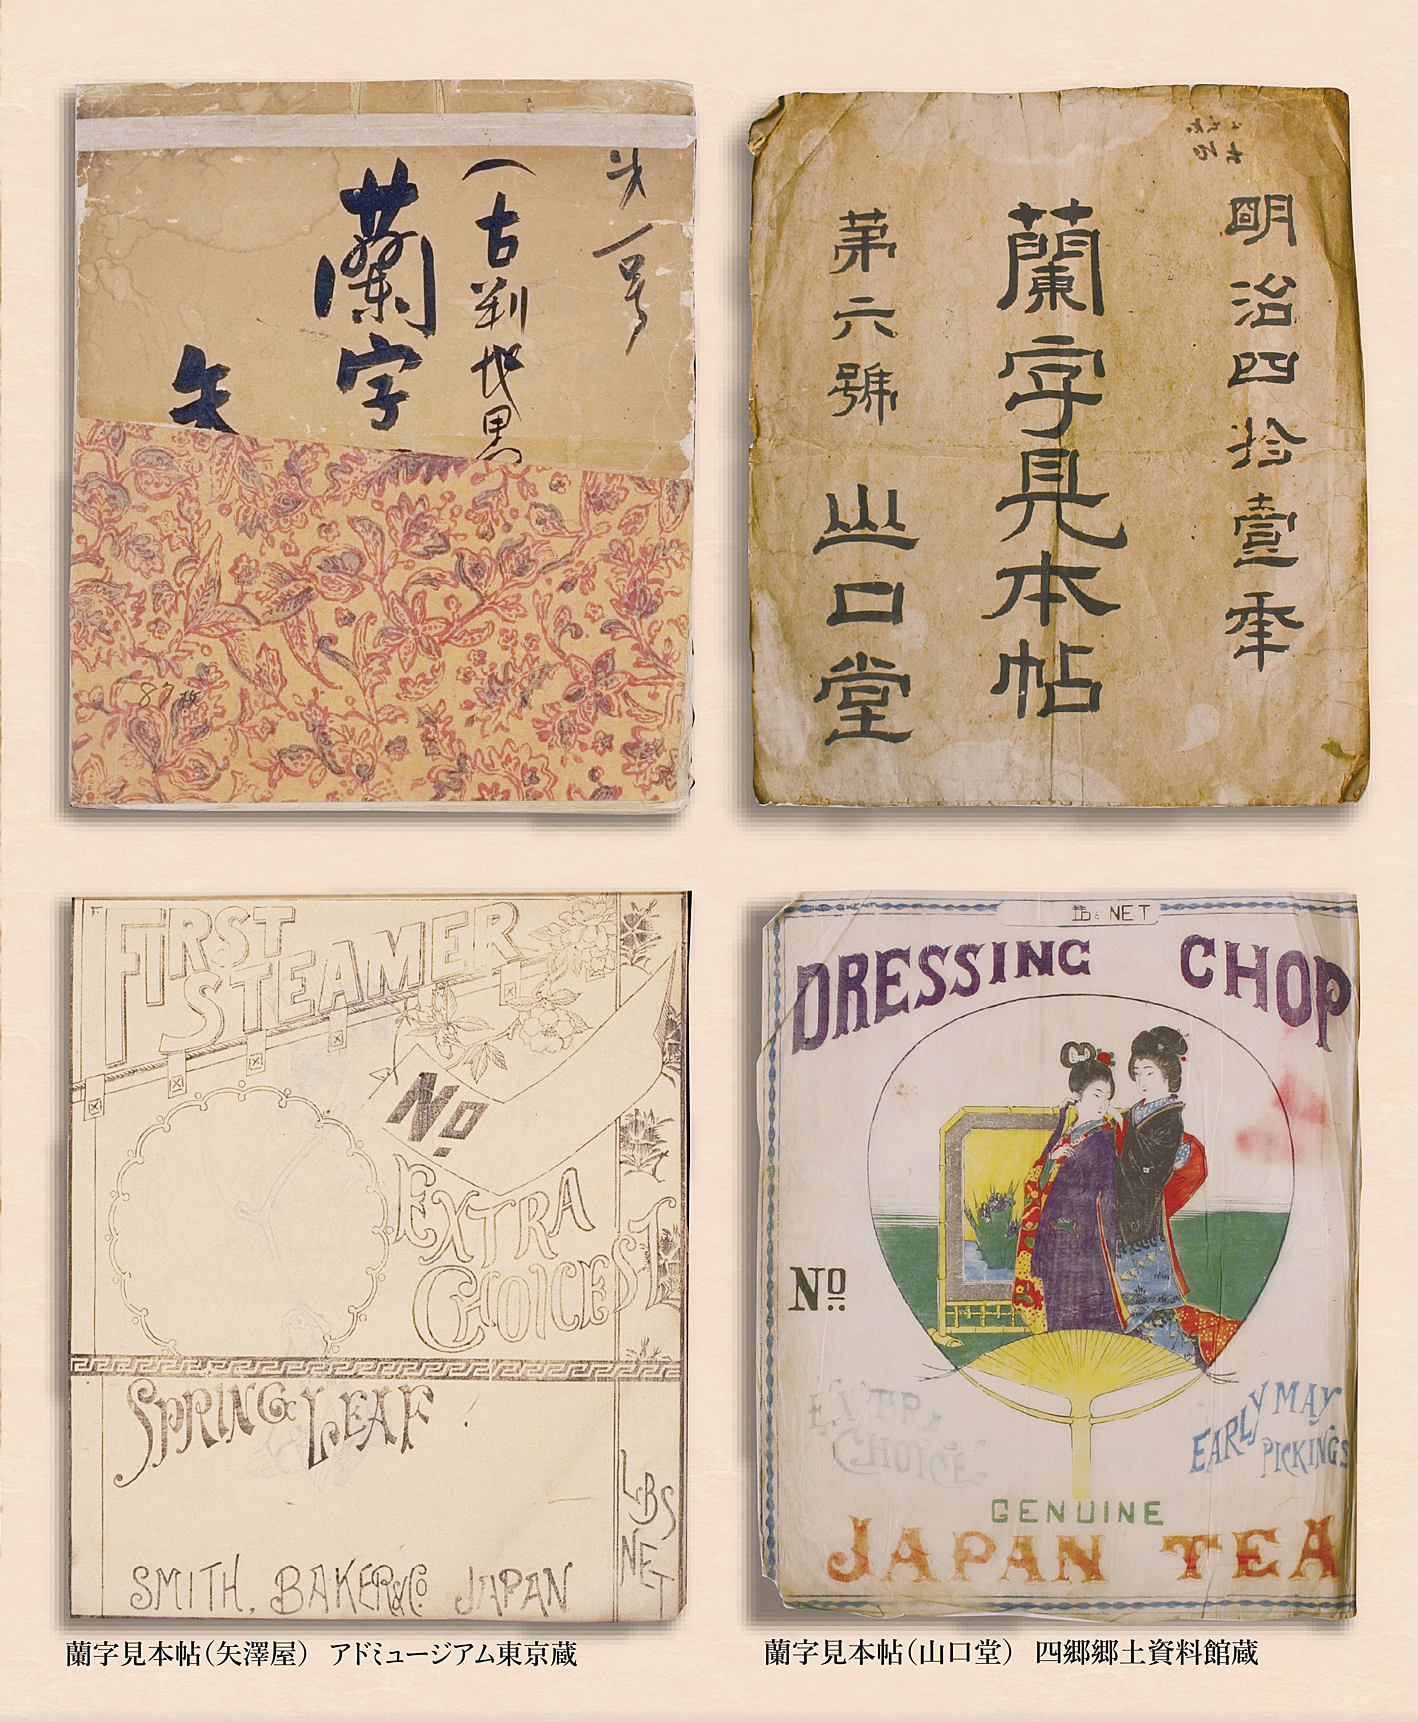 第一号
(古判地黒
蘭字
矢
87枚
明治四拾壹年
蘭字見本帖
第六號 山口堂
FIRST
STEAMER
No
EXTRA
CHOICEST
SPRING LEAF
LBS
NET
SMITH, BAKER & Co JAPAN
LBS NET
DRESSING CHOP
No
EXTRA
CHOICE
EARLY MAY
PICKINGS
GENUINE
JAPAN TEA
蘭字見本帖(矢澤屋) アドミュージアム東京蔵
蘭字見本帖(山口堂) 四郷郷土資料館蔵